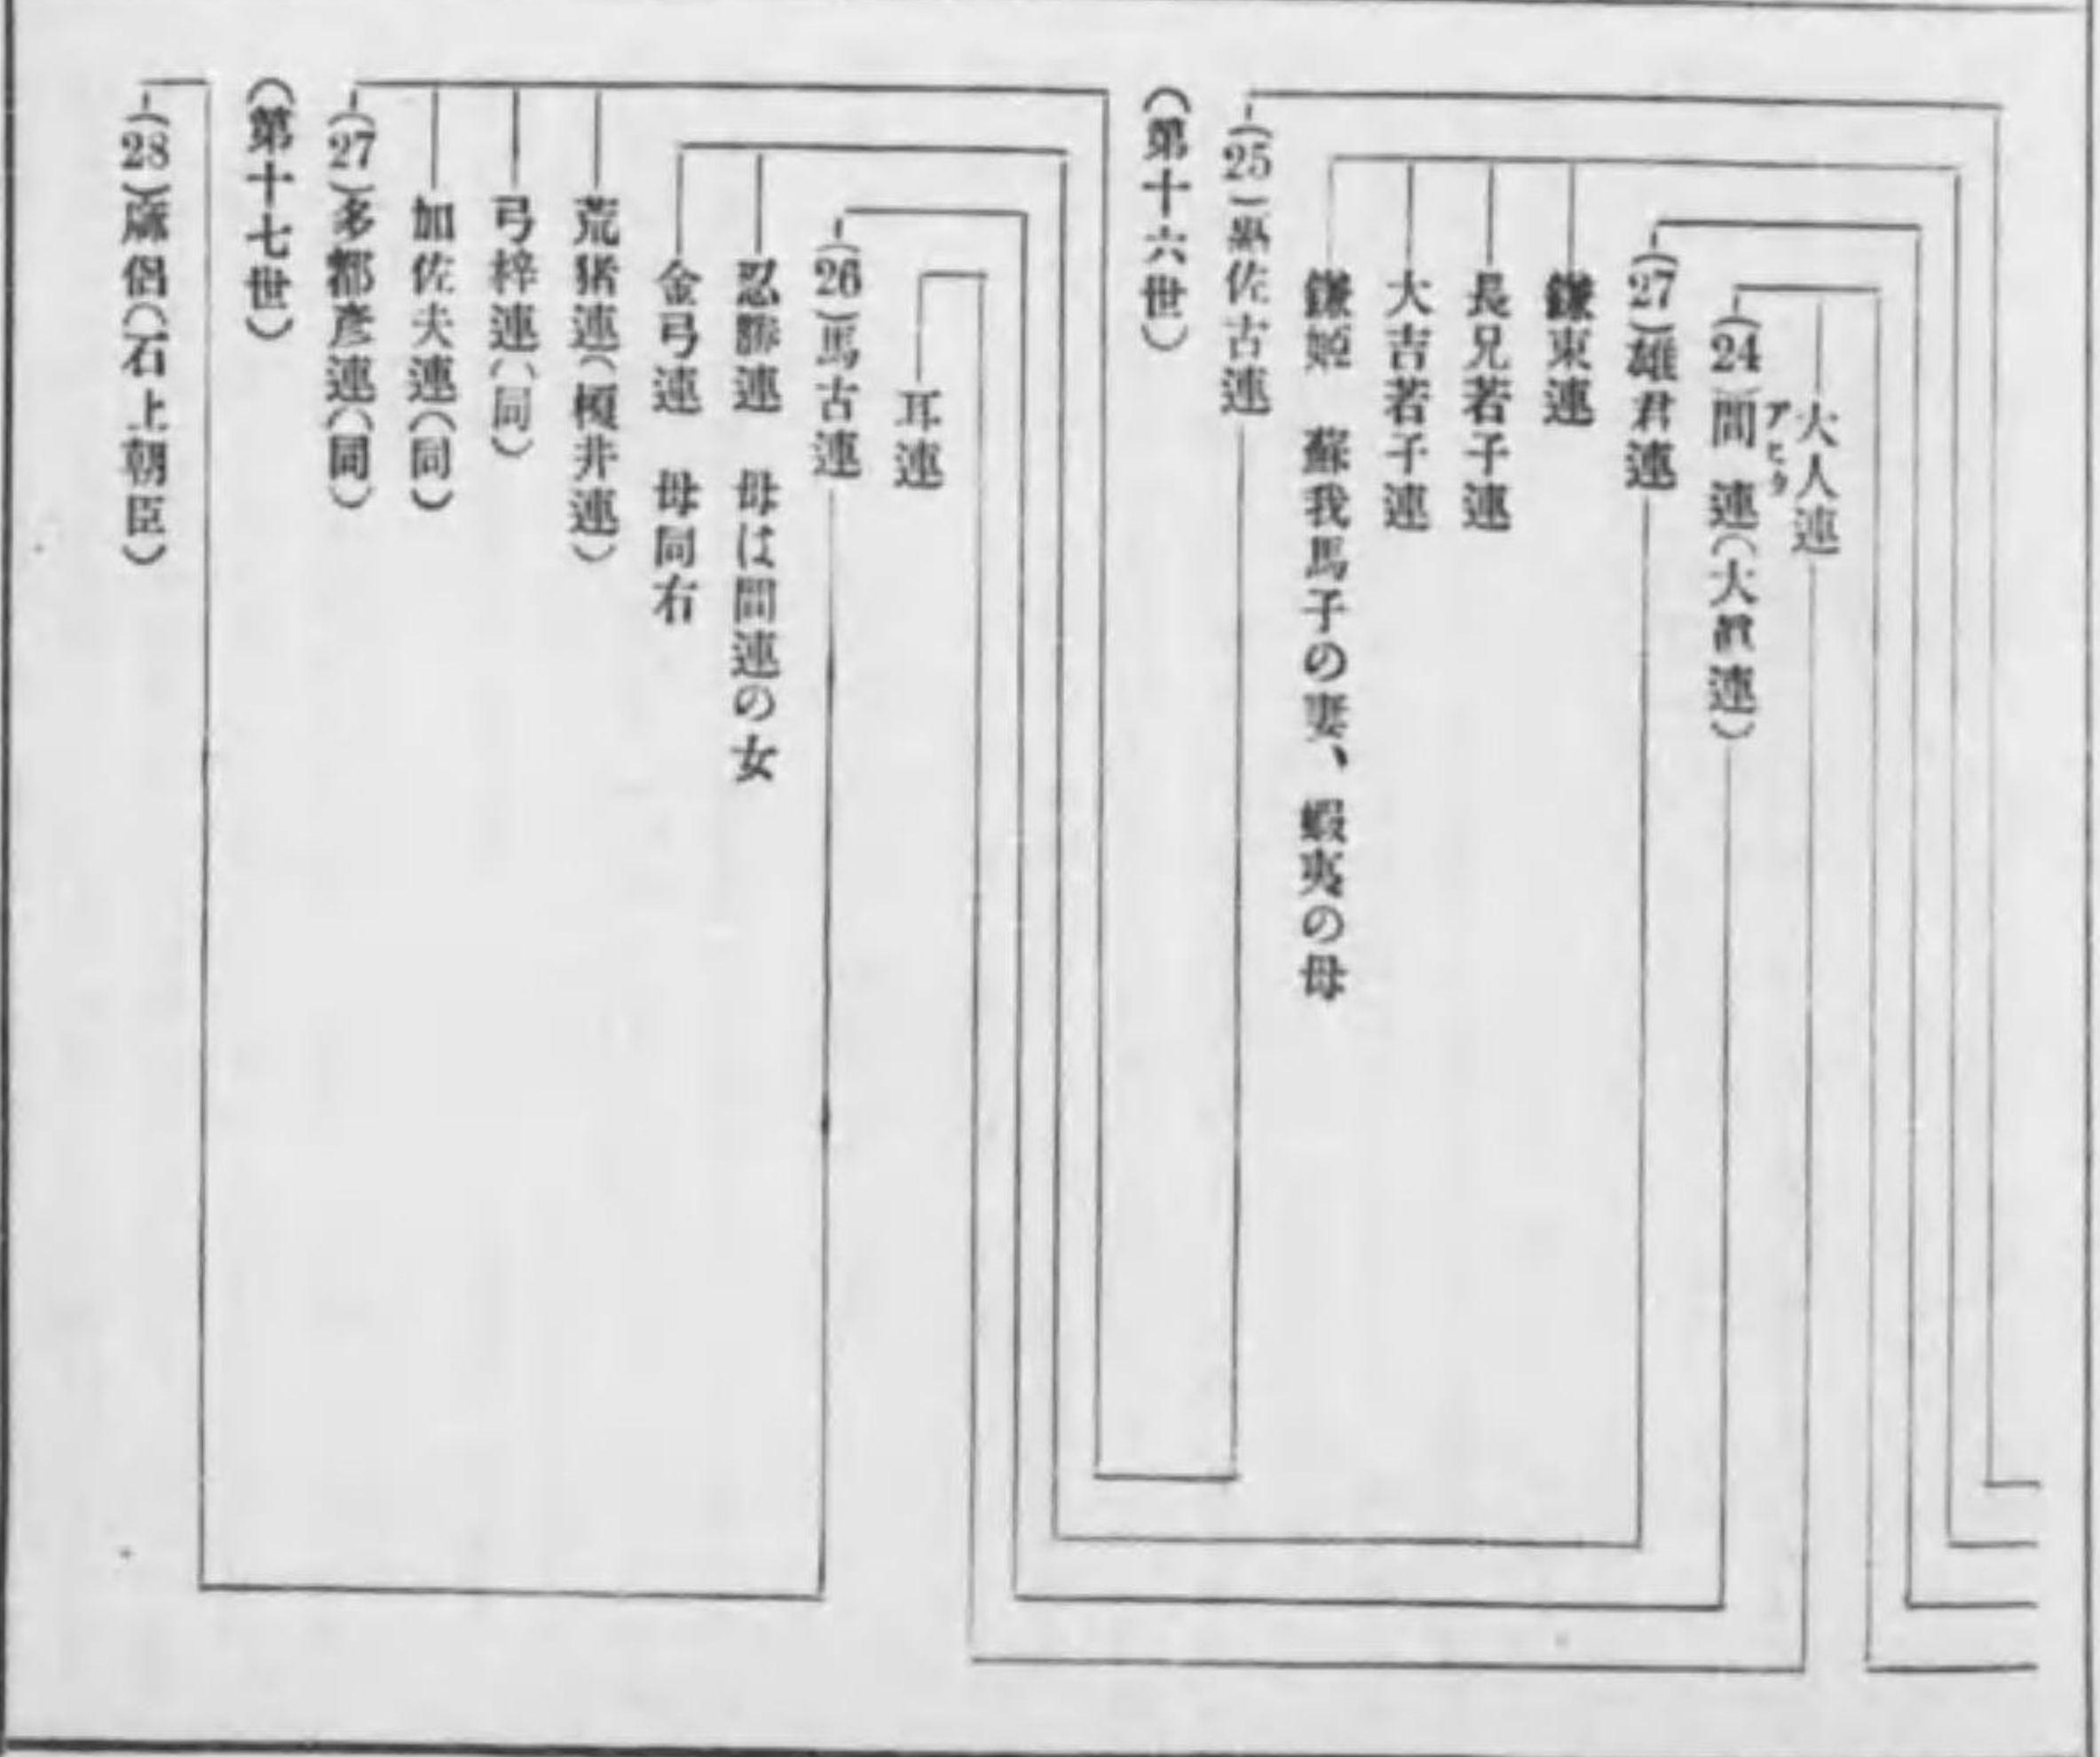 大人連
(24)間アヒダ連(大眞連)
(27)雄君連
鎌束連
長兄若子連
大吉若子連
鎌姫 蘇我馬子の妻、蝦夷の母
(25)佐古連
(第十六世)
耳連
(26)馬古連
忍勝連 母は間連の女
金弓連 母同右
荒猪連(榎井連)
弓梓連(同)
加佐夫連(同)
(27)多都彦連(同)
(第十七世)
(28)侶(石上朝臣)